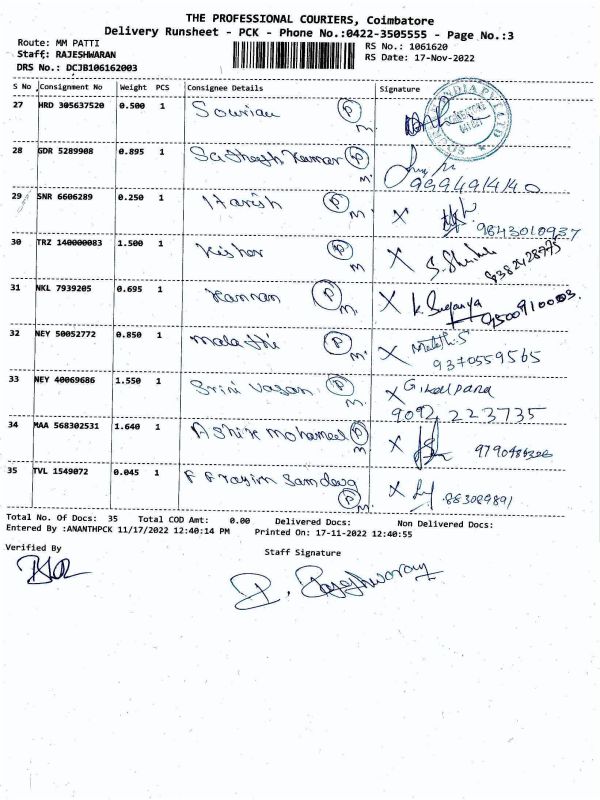 THE PROFESSIONAL COURIERS, Coimbatore
Delivery Runsheet - PCK - Phone No.:0422-3505555 - Page No.:3
Route: MM PATTI
RS No.: 1061620
Staff: RAJESHWARAN
RS Date: 17-Nov-2022
DRS No.: DCJB106162003
S No Consignment No Weight PCS Consignee Details Signature
27 HRD 305637520 0.500 1 Sourian P M.
28 GDR 5289908 0.895 1 Sathesh Kumar P M 9994914140
29 SNR 6606289 0.250 1 Harish P M X 9843010937
30 TRZ 140000083 1.500 1 Kishor P M X 8382428775
31 NKL 7939205 0.695 1 Kannan P M. X K. Suganya
32 NEY 50052772 0.850 1 malathi P M. X Malathi.S 9370559565
33 NEY 40069686 1.550 1 Srini vasan P M. X G. Kalpana 9092 223735
34 MAA 568302531 1.640 1 Ashik mohamed P M X
35 TVL 1549072 0.045 1 P M. X
Total No. Of Docs: 35 Total COD Amt: 0.00 Delivered Docs: Non Delivered Docs:
Entered By :ANANTHPCK 11/17/2022 12:40:14 PM Printed On: 17-11-2022 12:40:55
Verified By
Staff Signature
Rajeshwaran